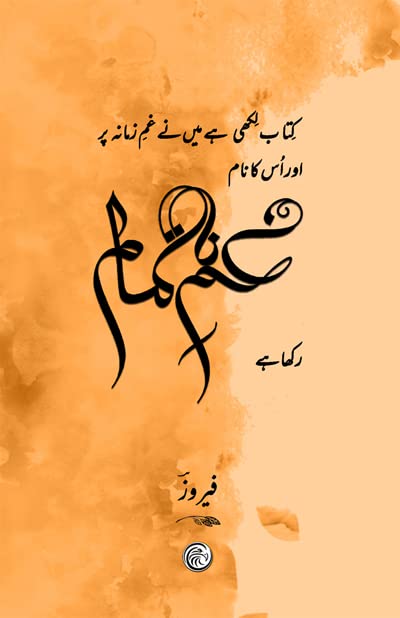 کِتاب لِکھی ہے میں نے غمِ زمانہ پر
اور اُس کا نام
غم ناتمام
رکھا ہے
فیروزؔ